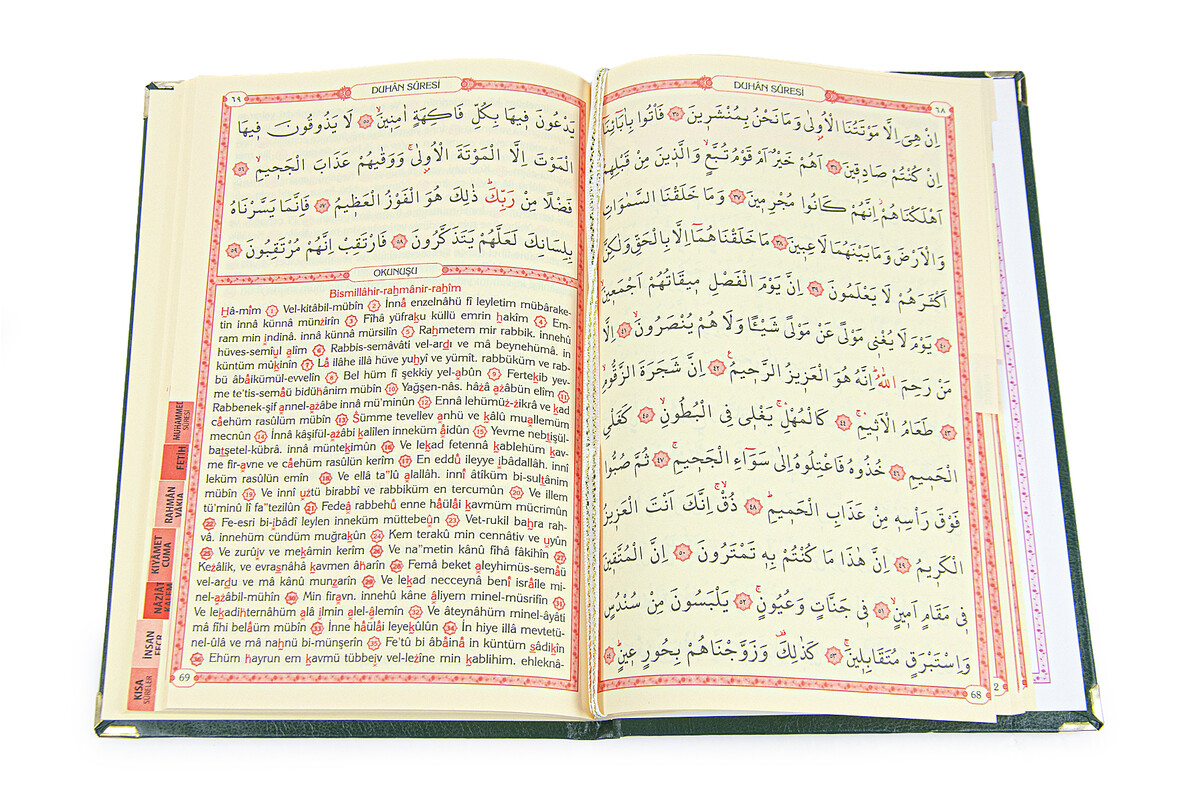 DUHÂN SÛRESİ
٦٨
اِنْ هِىَ اِلَّا مَوْتَتُنَا الْاُولٰى وَمَا نَحْنُ بِمُنْشَرِينَ ﴿٣٥﴾ فَاْتُوا بِاٰبَٓائِنَٓا
اِنْ كُنْتُمْ صَادِقِينَ ﴿٣٦﴾ اَهُمْ خَيْرٌ اَمْ قَوْمُ تُبَّعٍ وَالَّذِينَ مِنْ قَبْلِهِمْ
اَهْلَكْنَاهُمْ اِنَّهُمْ كَانُوا مُجْرِمِينَ ﴿٣٧﴾ وَمَا خَلَقْنَا السَّمٰوَاتِ
وَالْاَرْضَ وَمَا بَيْنَهُمَا لَاعِبِينَ ﴿٣٨﴾ مَا خَلَقْنَاهُمَٓا اِلَّا بِالْحَقِّ وَلٰكِنَّ
اَكْثَرَهُمْ لَا يَعْلَمُونَ ﴿٣٩﴾ اِنَّ يَوْمَ الْفَصْلِ مِيقَاتُهُمْ اَجْمَعِينَ
﴿٤٠﴾ يَوْمَ لَا يُغْنِى مَوْلًى عَنْ مَوْلًى شَيْـًٔا وَلَا هُمْ يُنْصَرُونَ ﴿٤١﴾ اِلَّا
مَنْ رَحِمَ اللّٰهُ اِنَّهُ هُوَ الْعَزِيزُ الرَّحِيمُ ﴿٤٢﴾ اِنَّ شَجَرَةَ الزَّقُّومِ
﴿٤٣﴾ طَعَامُ الْاَثِيمِ ﴿٤٤﴾ كَالْمُهْلِ يَغْلِى فِى الْبُطُونِ ﴿٤٥﴾ كَغَلْىِ
الْحَمِيمِ ﴿٤٦﴾ خُذُوهُ فَاعْتِلُوهُ اِلٰى سَوَٓاءِ الْجَحِيمِ ﴿٤٧﴾ ثُمَّ صُبُّوا
فَوْقَ رَاْسِهِ مِنْ عَذَابِ الْحَمِيمِ ﴿٤٨﴾ ذُقْ اِنَّكَ اَنْتَ الْعَزِيزُ
الْكَرِيمُ ﴿٤٩﴾ اِنَّ هٰذَا مَا كُنْتُمْ بِهِ تَمْتَرُونَ ﴿٥٠﴾ اِنَّ الْمُتَّقِينَ
فِى مَقَامٍ اَمِينٍ ﴿٥١﴾ فِى جَنَّاتٍ وَعُيُونٍ ﴿٥٢﴾ يَلْبَسُونَ مِنْ سُنْدُسٍ
وَاِسْتَبْرَقٍ مُتَقَابِلِينَ ﴿٥٣﴾ كَذٰلِكَ وَزَوَّجْنَاهُمْ بِحُورٍ عِينٍ ﴿٥٤﴾
68
2
DUHÂN SÛRESİ
٦٩
يَدْعُونَ فِيهَا بِكُلِّ فَاكِهَةٍ اٰمِنِينَ ﴿٥٥﴾ لَا يَذُوقُونَ فِيهَا
الْمَوْتَ اِلَّا الْمَوْتَةَ الْاُولٰى وَوَقٰيهُمْ عَذَابَ الْجَحِيمِ ﴿٥٦﴾
فَضْلًا مِنْ رَبِّكَ ذٰلِكَ هُوَ الْفَوْزُ الْعَظِيمُ ﴿٥٧﴾ فَاِنَّمَا يَسَّرْنَاهُ
بِلِسَانِكَ لَعَلَّهُمْ يَتَذَكَّرُونَ ﴿٥٨﴾ فَارْتَقِبْ اِنَّهُمْ مُرْتَقِبُونَ ﴿٥٩﴾
OKUNUŞU
Bismillâhir-rahmânir-rahîm
Hâ-mîm 1 Vel-kitâbil-mübîn 2 İnnâ enzelnâhü fî leyletim mübârake-
tin innâ künnâ münzirîn 3 Fîhâ yüfraku küllü emrin hakîm 4 Em-
ram min indinâ. innâ künnâ mürsilîn 5 Rahmetem mir rabbik. innehû
hüves-semîul alîm 6 Rabbis-semâvâti vel-ardı ve mâ beynehümâ. in
küntüm mûkinîn 7 Lâ ilâhe illâ hüve yuhyî ve yümît. rabbüküm ve rab-
bü âbâikümül-evvelîn 8 Bel hüm fî şekkiy yel-abûn 9 Fertekib yev-
me te'tis-semâü bidühânim mübîn 10 Yağşen-nâs. hâzâ azâbün elîm 11
Rabbenek-şif annel-azâbe innâ mü'minûn 12 Ennâ lehümüz-zikrâ ve kad
câehüm rasûlüm mübîn 13 Sümme tevellev anhü ve kâlû muallemüm
mecnûn 14 İnnâ kâşifül-azâbi kalîlen inneküm âidûn 15 Yevme nebtişül-
batşetel-kübrâ. innâ müntekimûn 16 Ve lekad fetennâ kablehüm kav-
me fir-avne ve câehüm rasûlün kerîm 17 En eddû ileyye ibâdallâh. innî
leküm rasûlün emîn 18 Ve ellâ ta"lû alallâh. innî âtîküm bi-sultânim
mübîn 19 Ve innî uztü birabbî ve rabbiküm en tercumûn 20 Ve illem
tü'minû lî fa"tezilûn 21 Fedeâ rabbehû enne hâülâi kavmüm mücrimûn
22 Fe-esri bi-ibâdî leylen inneküm müttebeûn 23 Vet-rukil bahra rah-
vâ. innehüm cündüm muğrakûn 24 Kem terakû min cennâtiv ve uyûn
25 Ve zurûıv ve mekâmin kerîm 26 Ve na"metin kânû fîhâ fâkihîn 27
Kezâlik, ve evrasnâhâ kavmen âharîn 28 Femâ beket aleyhimüs-semâü
vel-ardu ve mâ kânû munzarîn 29 Ve lekad necceynâ benî isrâîle mi-
nel-azâbil-mühîn 30 Min fir'avn. innehû kâne âliyem minel-müsrifîn 31
Ve lekadihternâhüm alâ ilmin alel-âlemîn 32 Ve âteynâhüm minel-âyâti
mâ fîhi belâüm mübîn 33 İnne hâülâi leyekûlûn 34 İn hiye illâ mevtetü-
nel-ûlâ ve mâ nahnü bi-münşerîn 35 Fe'tû bi âbâinâ in küntüm sâdikîn
36 Ehüm hayrun em kavmü tübbeıv vel-lezîne min kablihim. ehleknâ-
69
MUHAMMED
SÛRESİ
FETİH
RAHMÂN
VÂKIA
KIYAMET
CUMA
NÂZİÂT
İNSAN
FECR
KISA
SÛRELER